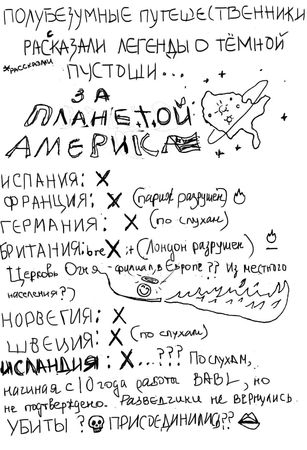 ПОЛУБЕЗУМНЫЕ ПУТЕШЕСТВЕННИКИ
РАССКАЗАЛИ ЛЕГЕНДЫ О ТЁМНОЙ
*РАССКАЗАЛИ
ПУСТОШИ...
ЗА
ПЛАНЕТОЙ
АМЕРИКА
ИСПАНИЯ: X
ФРАНЦИЯ: X (Париж разрушен)
ГЕРМАНИЯ: X (по слухам)
БРИТАНИЯ: brexit (Лондон разрушен)
Церковь Огня - филиал в Европе?? Из местного
населения?)
НОРВЕГИЯ: X
ШВЕЦИЯ: X (по слухам)
ИСЛАНДИЯ: X...??? По слухам,
начиная с 10 года работа BABL, но
не подтверждено. Разведчики не вернулись.
УБИТЫ? ПРИСОЕДИНИЛИСЬ??